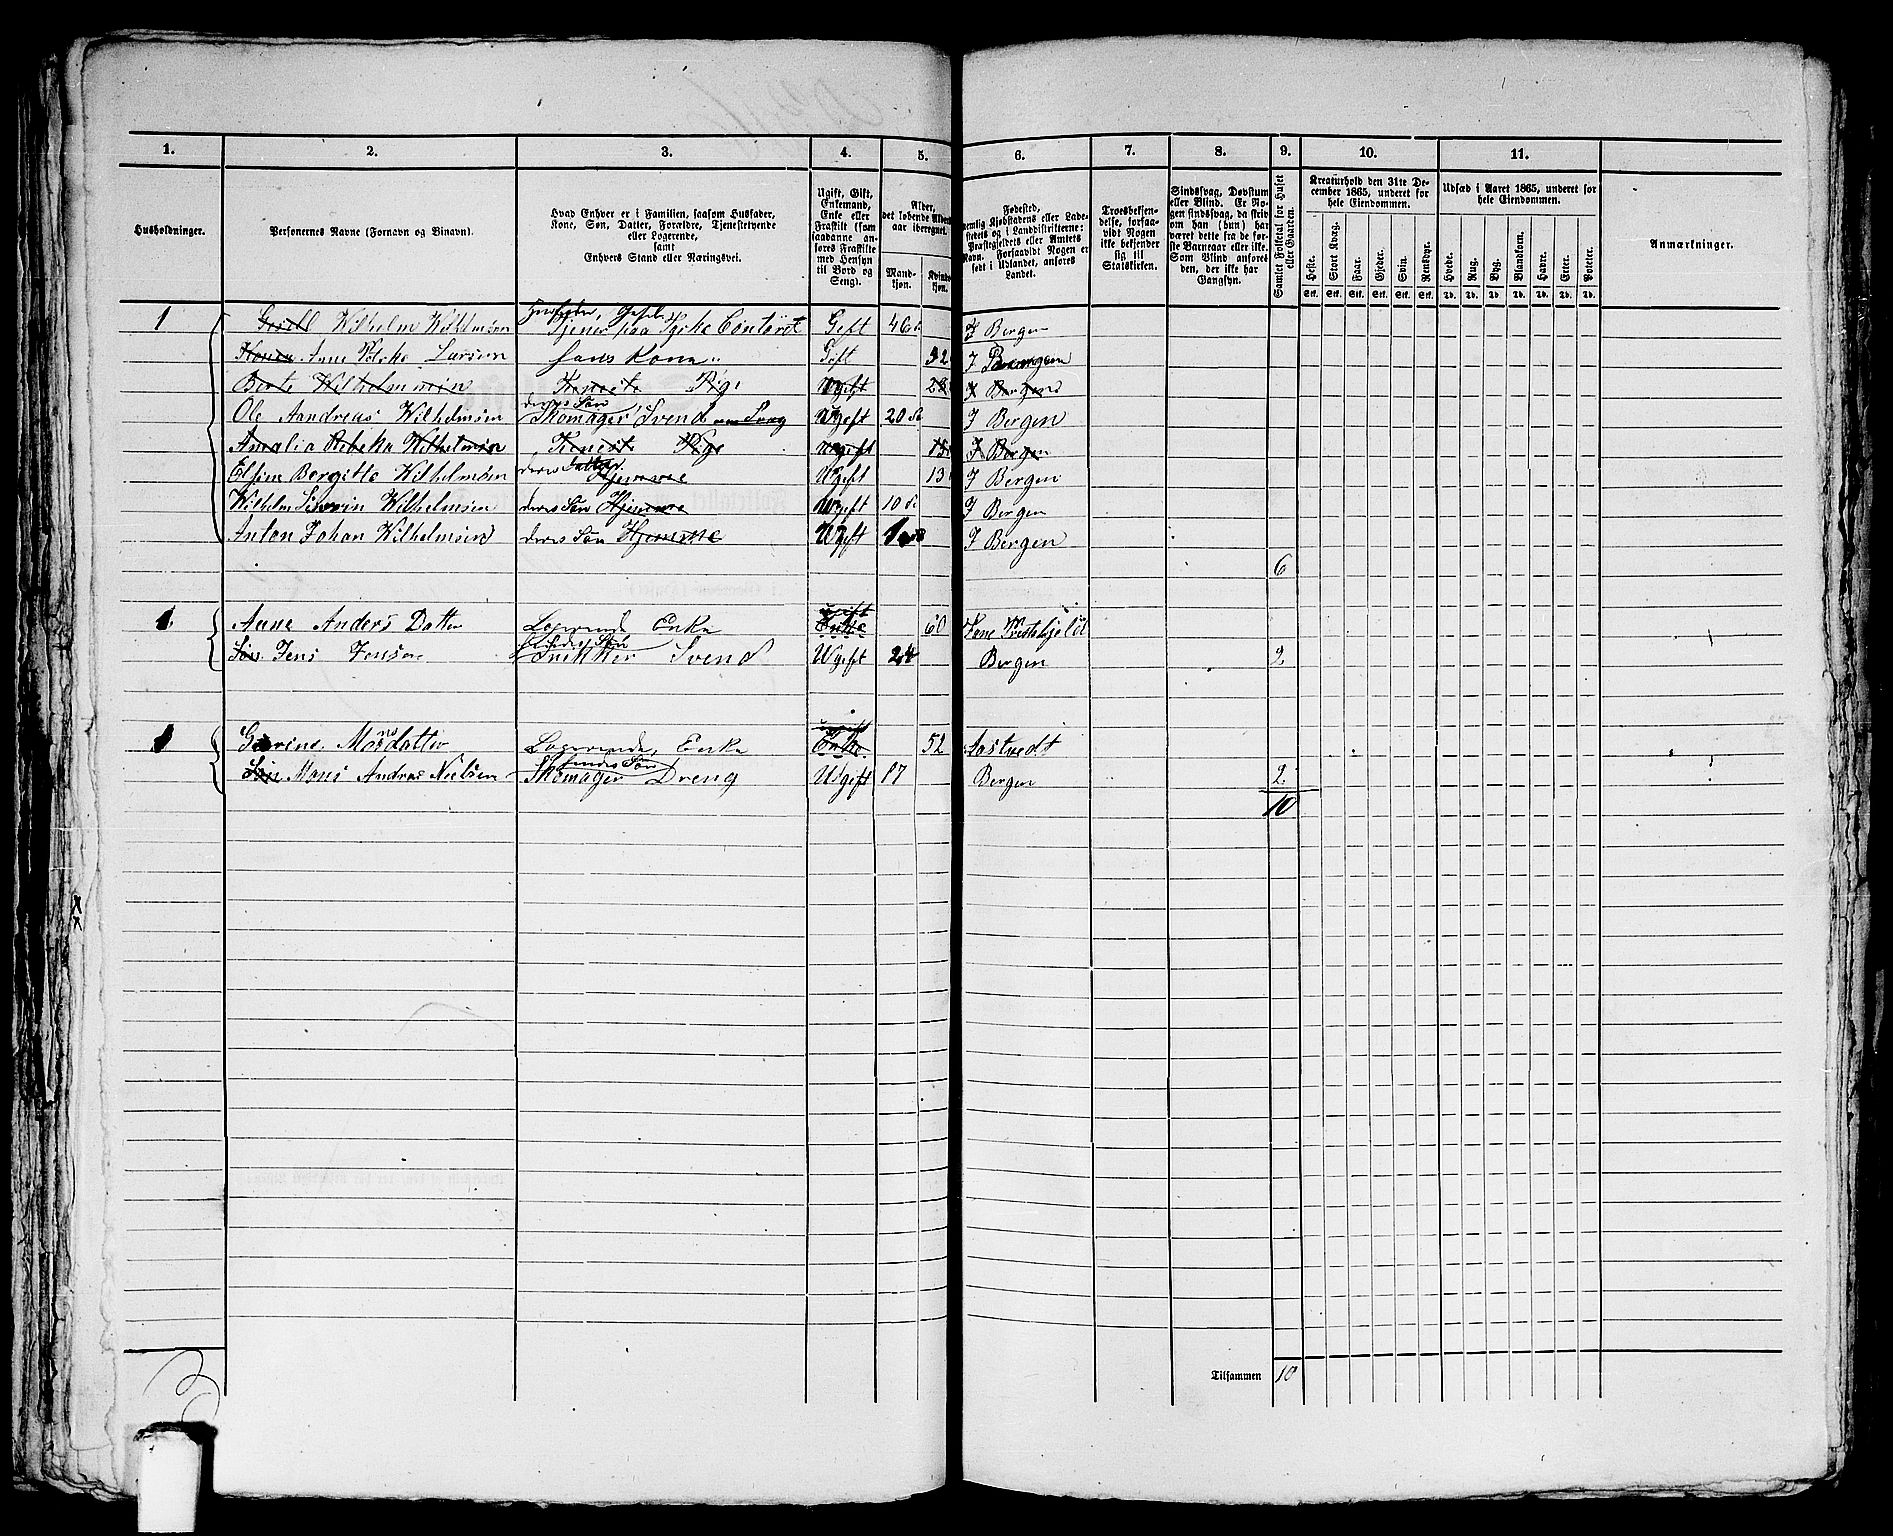 1. 2. 3. 4. 5. 6. 7. 8. 9. 10. 11.
Husholdninger.
Personernes Navne (Fornavn og Binavn).
Hvad Enhver er i Familien, saasom Husfader, Kone, Søn, Datter, Forældre, Tjenestetyende eller Logerende, samt Enhvers Stand eller Næringsvei.
Ugift, Gift, Enkemand, Enke eller Fraskilt (som saadanne anføres Fraskilte med Hensyn til Bord og Seng).
Alder, det løbende Alders aar iberegnet.
Mandkjøn. Kvindekjøn.
Fødested,
nemlig Kjøbstadens eller Ladestedets og i Landdistrikterne: Præstegjeldets eller Amtets Navn. Forsaavidt Nogen er født i Udlandet, anføres Landet.
Troesbekjendelse, forsaavidt Nogen ikke bekjender sig til Statskirken.
Sindssvag, Døvstum eller Blind. Er Nogen sindssvag, da skriv om han (hun) har været dette fra de første Barneaar eller ikke. Som Blind anføres den, der ikke har Gangsyn.
Samlet Folketal for Huset eller Gaarden.
Kreaturhold den 31te December 1865, underet for hele Eiendommen.
Heste. Stort Kvæg. Faar. Gjeder. Svin. Rensdyr.
Stk. Stk. Stk. Stk. Stk. Stk.
Udsæd i Aaret 1865, underet for hele Eiendommen.
Hvede. Rug. Byg. Blandkorn. Havre. Erter. Poteter.
Td. Td. Td. Td. Td. Td. Td.
Anmærkninger.
1 Wilhelm Wilhelmsen Husfader, Tjener paa Tyske Contoret Geft 46 I Bergen
Konen Ane Larsen hans Kone Geft 52 I Bergen
Berte Wilhelmsen Tieneste Pige Ugeft 23 I Bergen
Ole Aandreas Wilhelmsen deres Søn Skomager Svend Ugeft 20 I Bergen
Amalia Rebeka Wilhelmsen Tieneste Pige Ugeft 15 I Bergen
Elsine Bergitte Wilhelmsen deres Datter Hjemme Ugeft 13 I Bergen
Wilhelm Severin Wilhelmsen deres Søn Hjemme Ugeft 10 I Bergen
Anton Johan Wilhelmsen deres Søn Hjemme Ugeft I Bergen
6
1 Anne Anders Datter Logerende Enke ugift Enke 60
Søn Jens Jensen hendes Søn Snikker Svend Ugeft 24 Bergen 2
1 Monsdatter Logerende, Enke ugift Enke 52 Aastvedt
Søn Mons Andreas Nielsen hendes Søn Skomager Dreng Ugeft 17 Bergen 2
10
Tilsammen 10